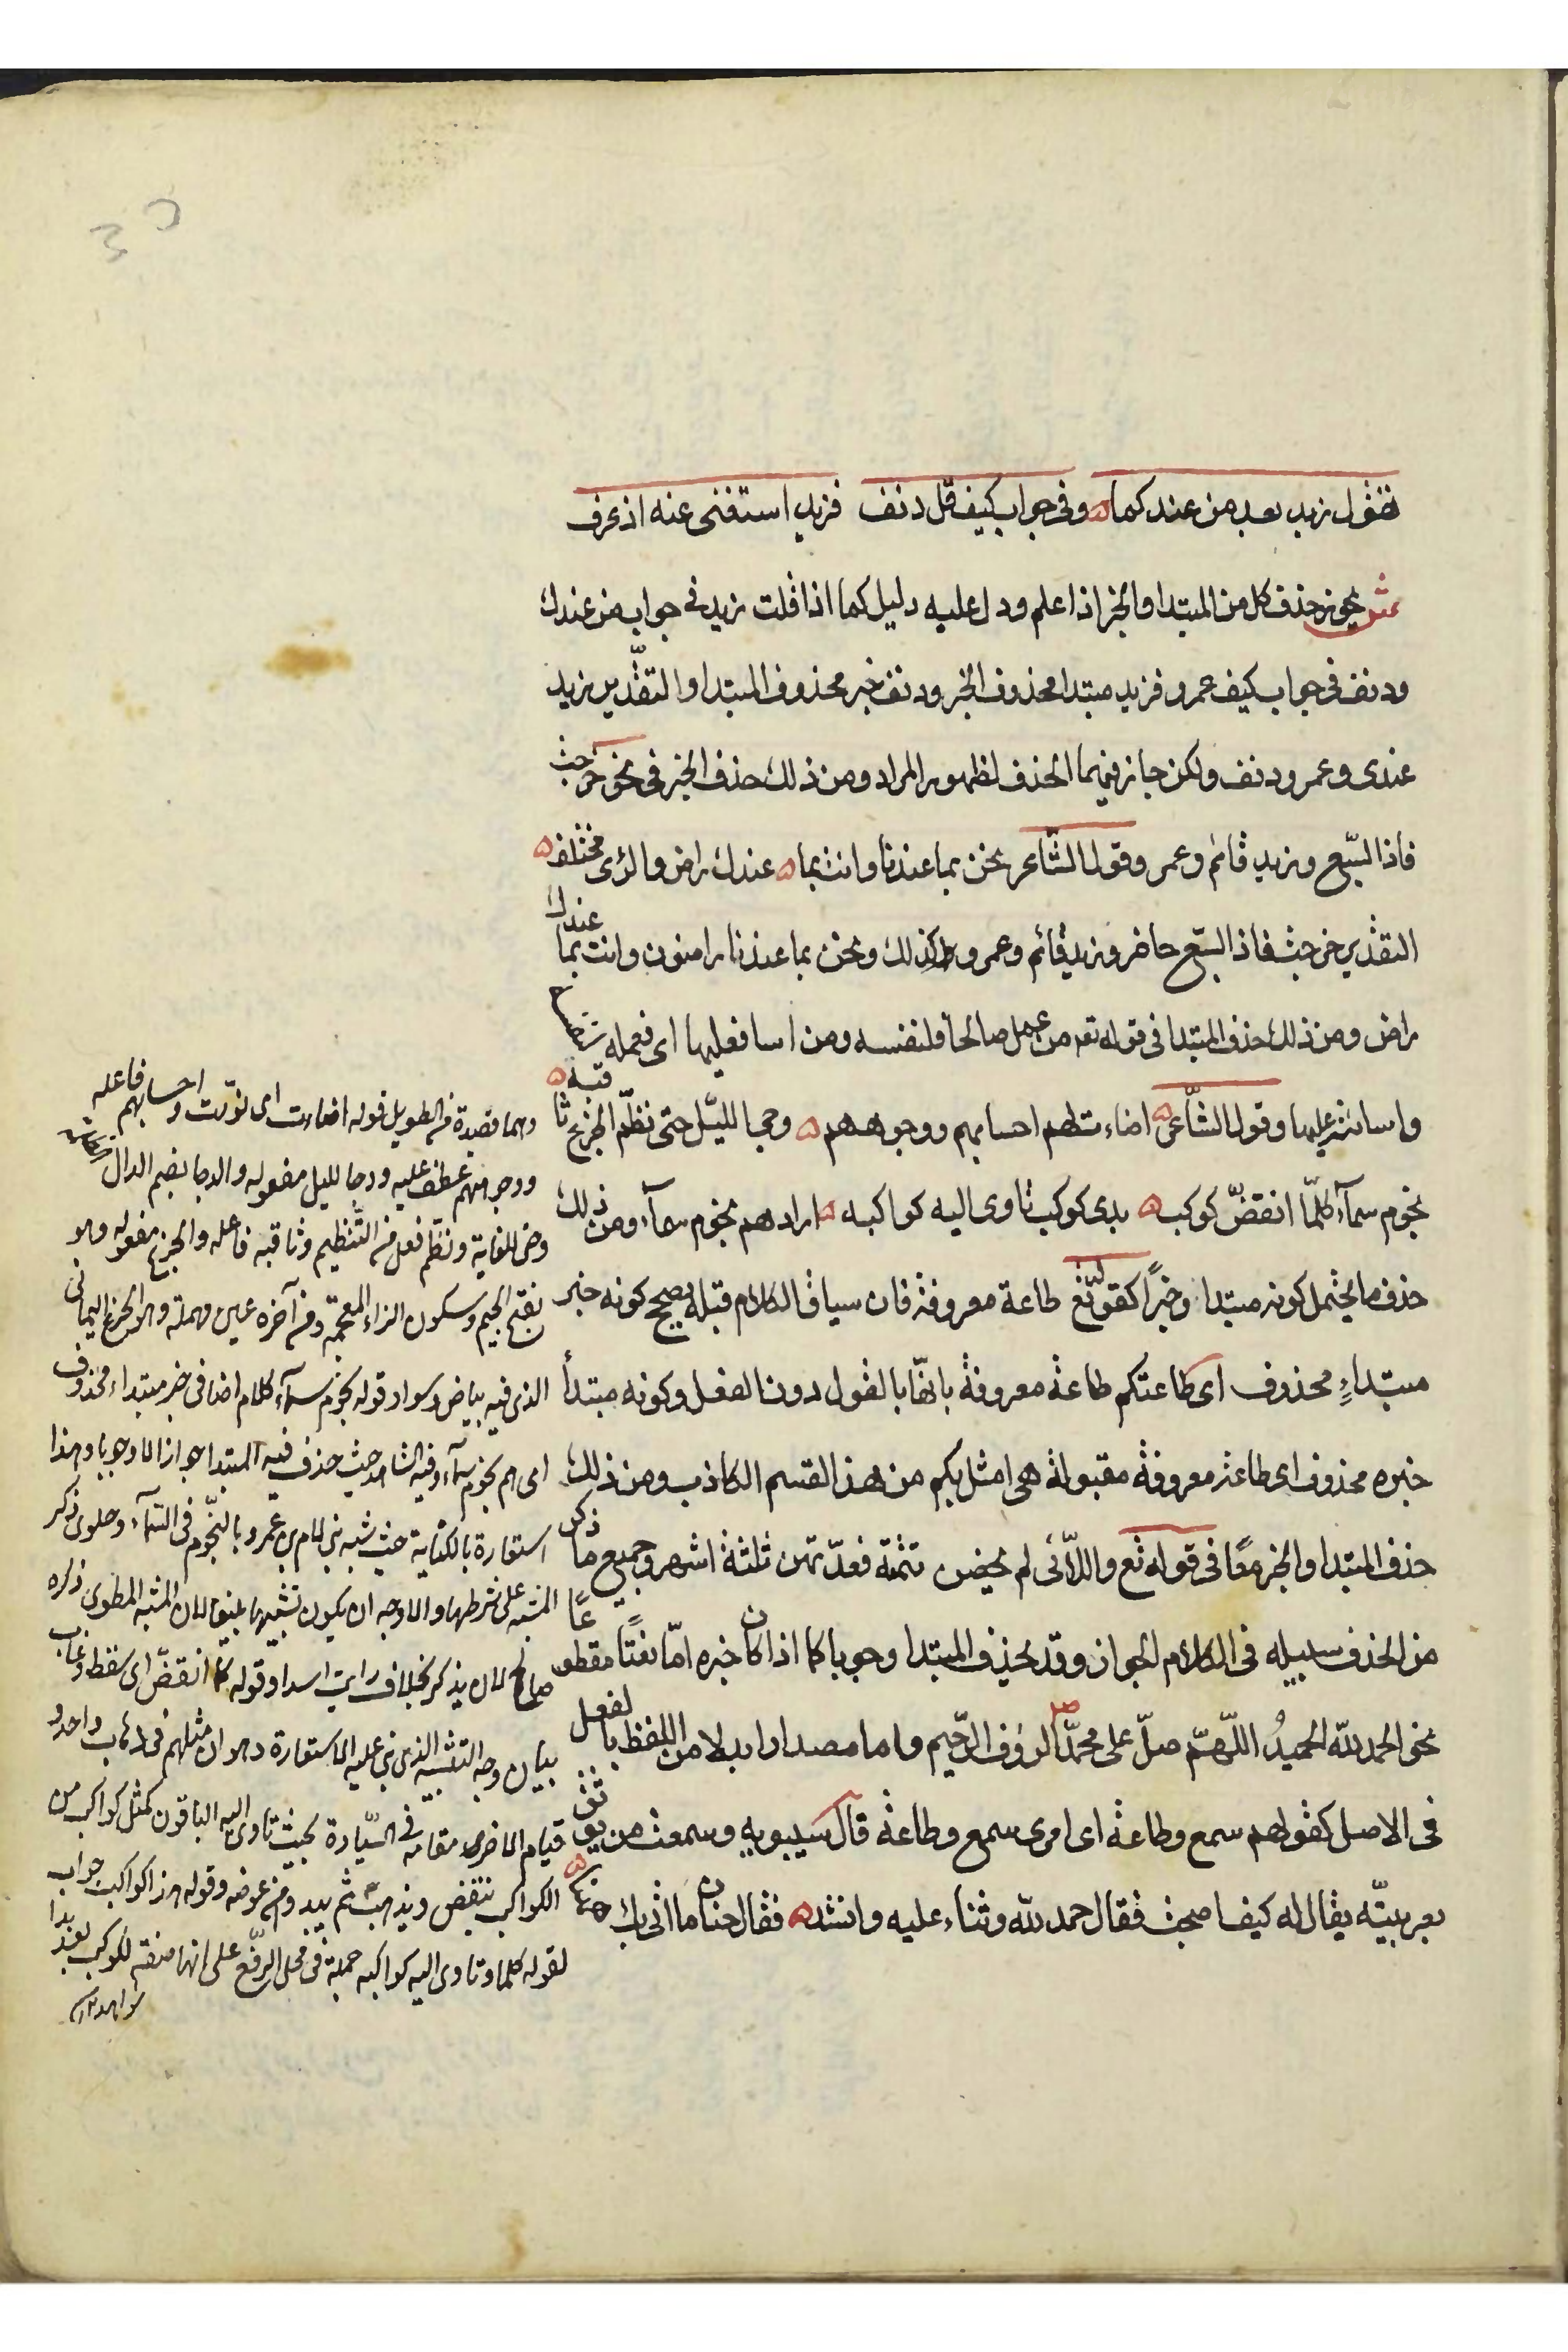 تقول زيد بعد من عندكما وفي جواب كيف قل دنف فزيد استغنى عنه اذ عرف
ش يجوز حذف كل من المبتدا والخبر اذا علم ودل عليه دليل كما اذا قلت زيد في جواب من عندك
ودنف في جواب كيف عمرو فزيد مبتدا محذوف الخبر ودنف خبر محذوف المبتدا والتقدير زيد
عندى وعمرو دنف ولكن جاز فيهما الحذف لظهور المراد ومن ذلك حذف الخبر في نحو خرجت
فاذا السّبع وزيد قائم وعمر وقول الشّاعر نحن بما عندنا وانت بما عندك راض والرٔى مختلف
التقدير خرجت فاذا السّبع حاضر وزيد قائم وعمرو كذلك ونحن بما عندنا راضون وانت بما عندك
راض ومن ذلك حذف المبتدا في قوله تعه من عمل صالحًا فلنفسه ومن اسا فعليها اى فعمله
واساءته عليها وقول الشّاعر اضاءت لهم احسابهم ووجوههم دجا اللّيل حتى نظّم الجزع ثاقبه
نجوم سمآء كلّما انقضّ كوكب بدى كوكب تاوى اليه كواكبه اراد هم نجوم سمآء ومن ذلك
حذف ما يحتمل كونه مبتدا وخبرًا كقوله تع طاعة معروفة فان سياق الكلام قبله يصحح كونه خبر
مبتداءٍ محذوف اى طاعتكم طاعة معروفة بانها بالقول دون الفعل وكونه مبتدأ
خبره محذوف اى طاعة معروفة مقبولة هى امثل بكم من هذ القسم الكاذب ومن ذلك
حذف المبتدا والخبر معًا في قوله تع واللّائى لم يحضن تتمته فعدّتهن ثلثة اشهر وجميع ما ذكر
من الحذف سبيله في الكلام الجواز وقد يحذف المبتدا وجوبا كما اذا كان خبره امّا نعتًا مقطوعًا
نحى الحمد للّه الحميدُ اللّهمّ صلّ على محمّد الرؤف الرّحيم واما مصدارا بدلا من اللفظ بالفعل
في الاصل كقولهم سمع وطاعة اى امرى سمع وطاعة قال سيبويه وسمعت من يوثق
بعربيّته يقال له كيف اصبحت فقال حمد للّه وثناء عليه وانشد فقال حنان ما اتى بك ههنا
وهما قصيدة من الطويل قوله اضاءت اى نوّرت واحسابهم فاعله
ووجوههم عطف عليه ودجا لليل مفعوله والدجا بضم الدال
وحتى للغاية ونظم فعل من التّنظيم وثاقبه فاعله والجزع مفعوله وهو
بفتح الجيم وسكون الزاء المعجمة وفى آخره عين مهملة وهو الجزع اليمانى
الذى فيه بياض وسواد قوله نجوم سمآء كلام اضافى خبر مبتداء محذوف
اى هم نجوم سمآء وفيه الشاهد حيث حذف فيه المبتدا جوازا لا وجوبا وهذا
استعارة بالكناية حيث شبه بنى لام بن عمرو بالنّجوم في السّمآء وطوى ذكر
المشبه على شرطها والاوجه ان يكون تشبيها بليغا لان المشبه المطوى ذكره
صالح لان يذكر بخلاف رايت اسدا وقوله كلّما انقضّ اى سقط وغاب
بيان وجه التشبيه الذى بنى عليه الاستعارة وهو ان مثلهم في ذهاب واحد و
قيام الاخر مقامه في السّيادة بحيث تاوى اليه الباقون كمثل كواكب من
الكواكب تنقض ويذهب ثم يبدو من عوضه وقوله بدا كواكب جواب
لقوله كلما وتاوى اليه كواكبه جملة في محل الرّفع على انها صفة لكوكب بعد بدا
شواهد